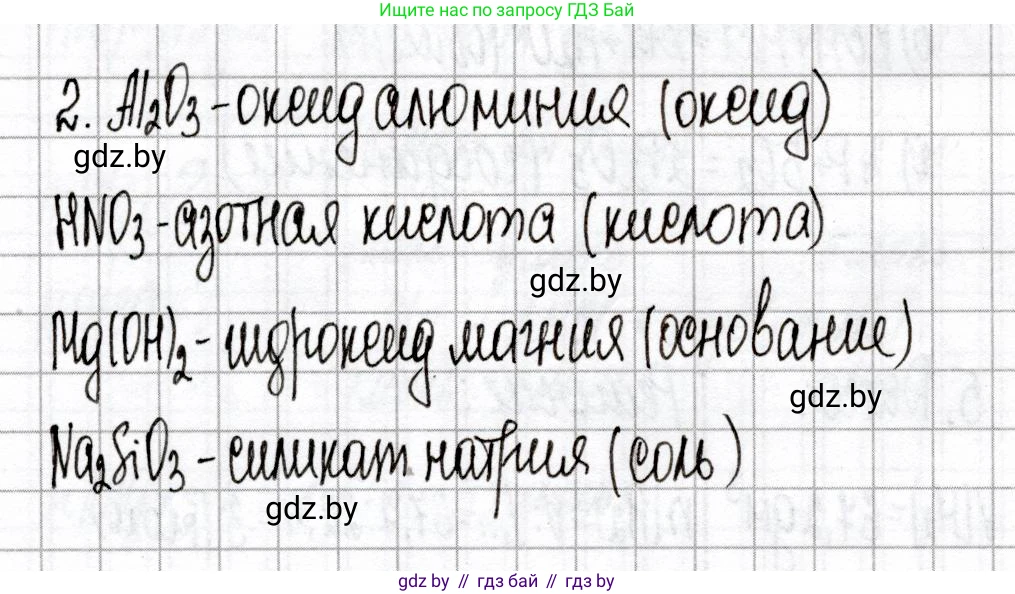 Ищите нас по запросу ГДЗ Бай
2. Al₂O₃ - оксид алюминия (оксид)
gdz.by
HNO₃ - азотная кислота (кислота)
gdz.by
Mg(OH)₂ - гидроксид магния (основание)
gdz.by
Na₂SiO₃ - силикат натрия (соль)
gdz.by
gdz by // гдз бай // гдз by